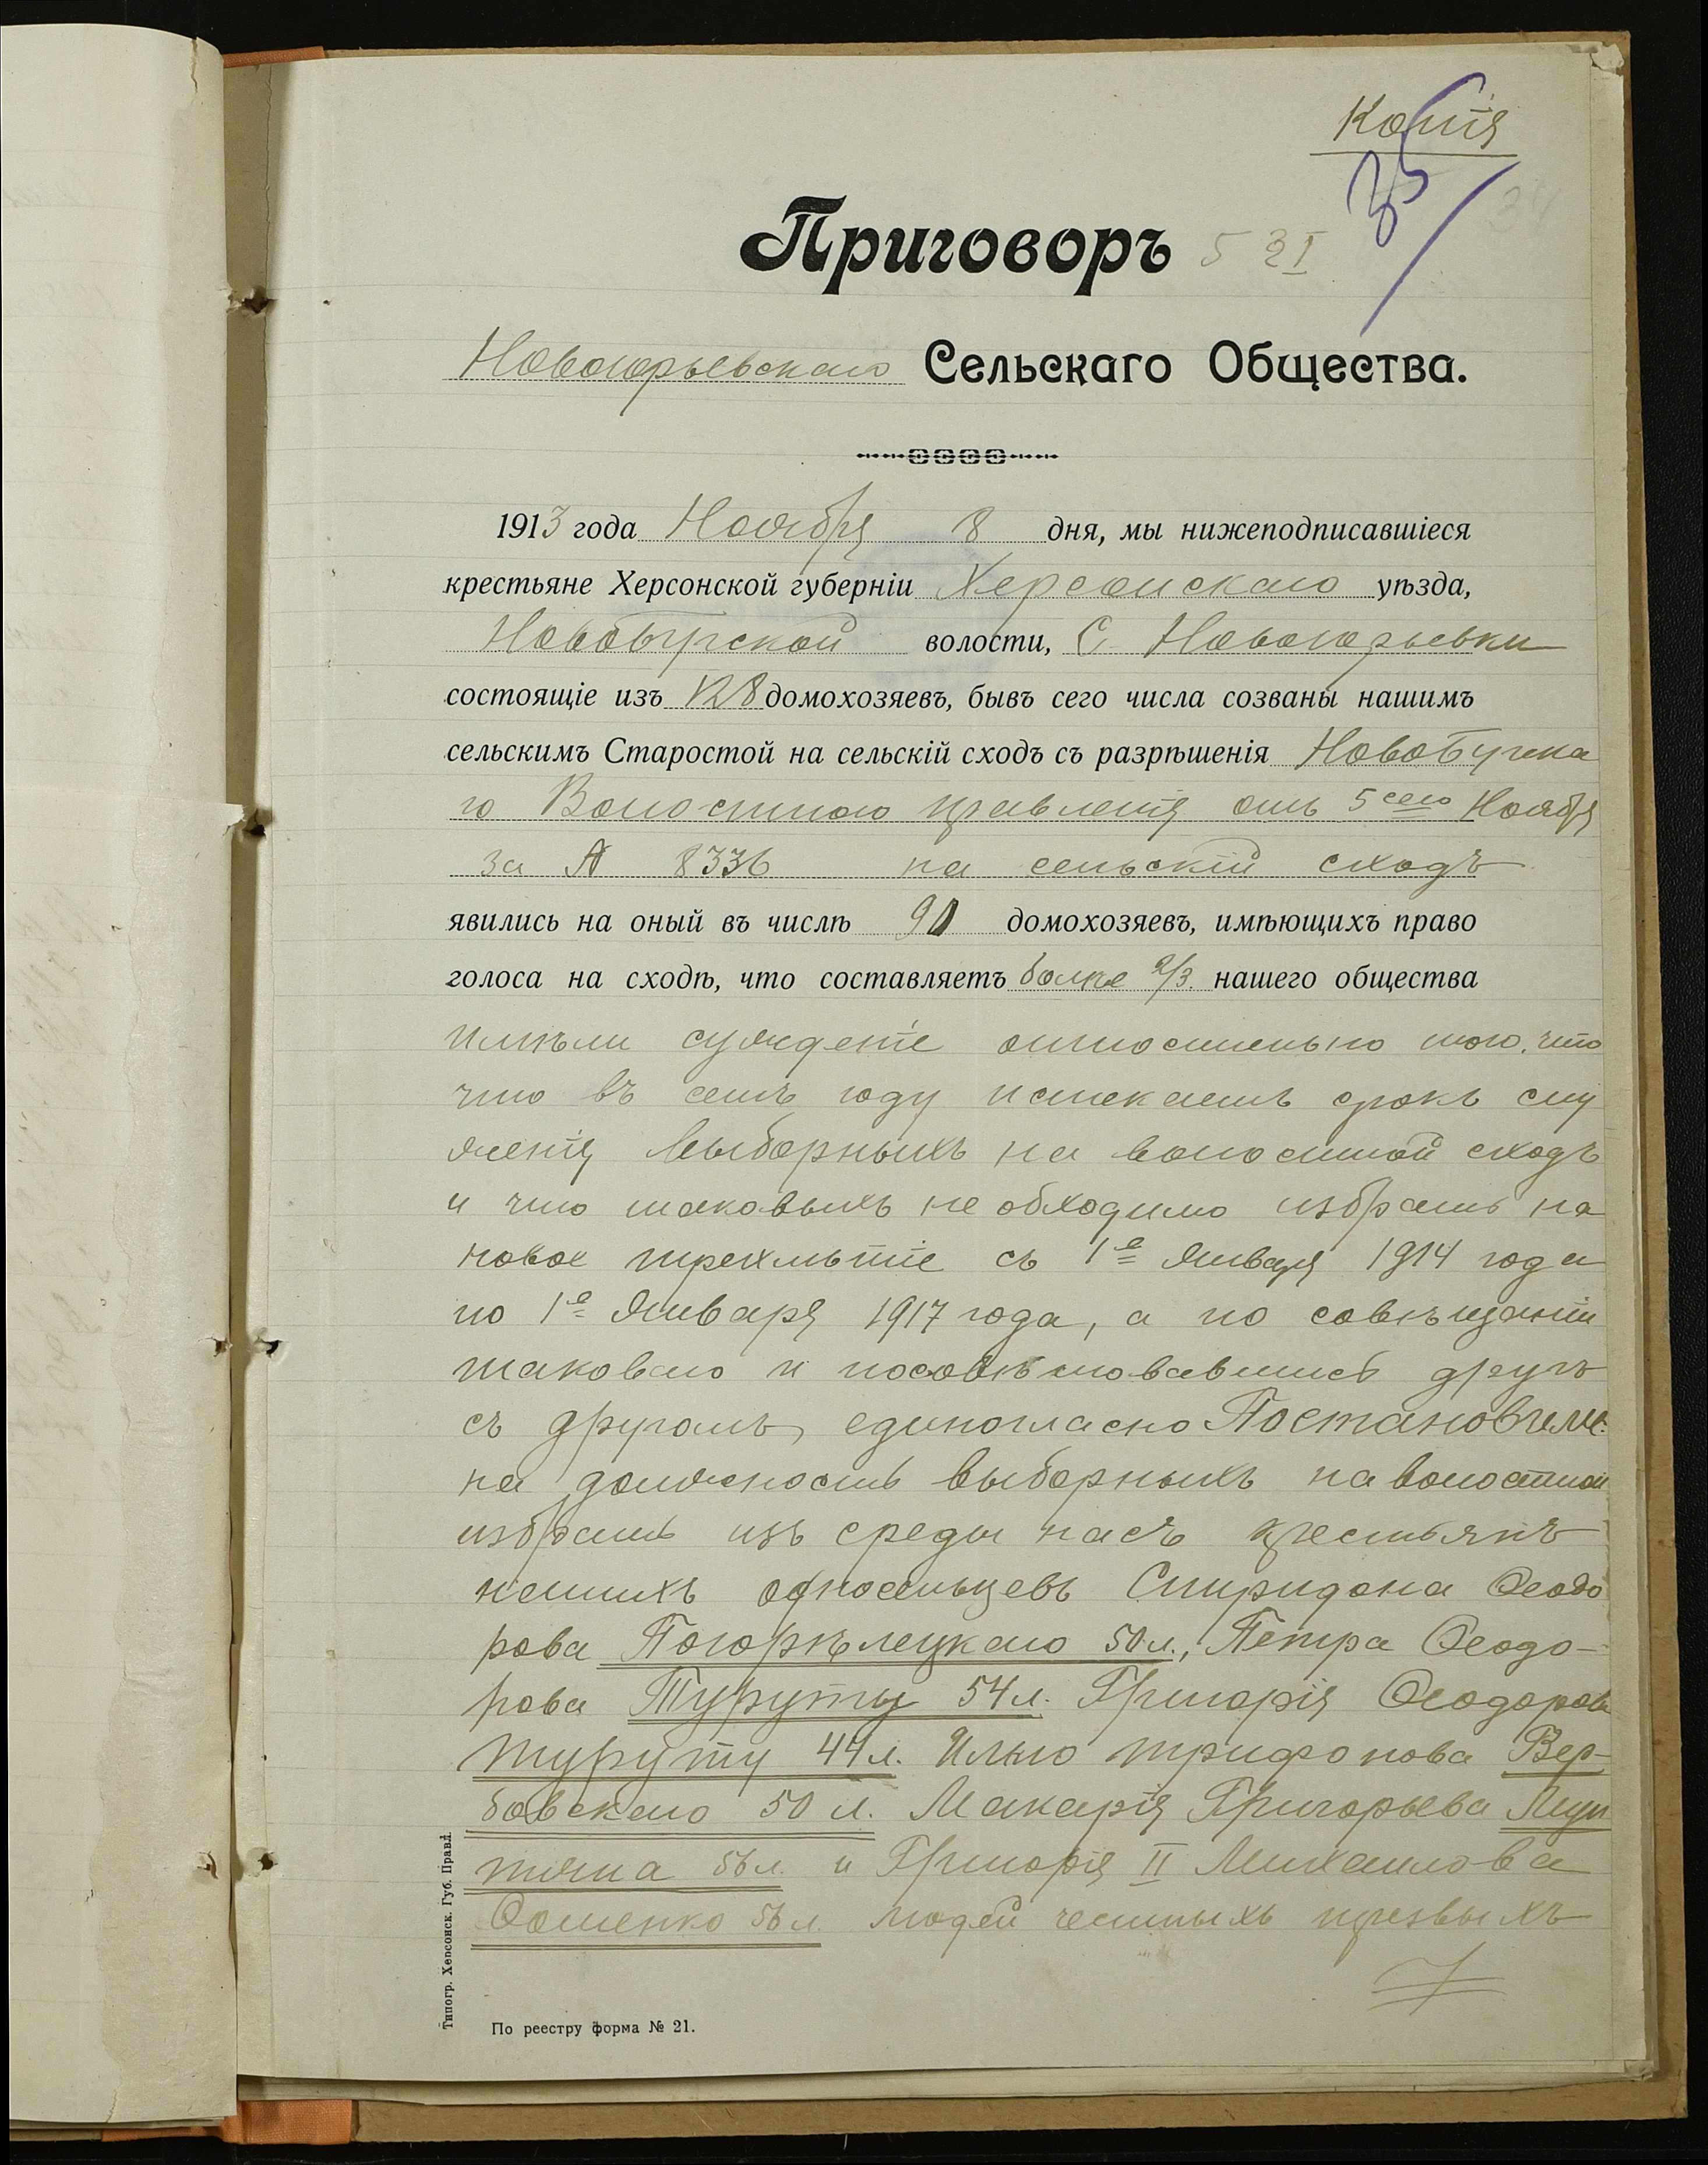 Копія
35
34
Приговоръ 5 31
Новоюрьевскаго Сельскаго Общества.
1913 года Ноября 8 дня, мы нижеподписавшіеся
крестьяне Херсонской губерніи Херсонскаго уѣзда,
Новобугской волости, С. Новоюрьевки
состоящіе изъ 128 домохозяевъ, бывъ сего числа созваны нашимъ
сельскимъ Старостой на сельскій сходъ съ разрѣшенія Новобугска
го Волостного правленія отъ 5 сего Ноября
за № 8336 на сельскій сходъ
явились на оный въ числѣ 90 домохозяевъ, имѣющихъ право
голоса на сходѣ, что составляетъ болѣе 2/3. нашего общества
имѣли сужденіе относительно того, что
что въ семъ году истекаетъ срокъ слу
женія Выборныхъ на волостной сходъ
и что таковыхъ не обходимо избрать на
новое трехлѣтіе съ 1е Января 1914 года
по 1е Января 1917 года, а по совѣщаніи
таковаго и посовѣтовавшись другъ
съ другомъ, единогласно Постановили:
на должность выборныхъ на волостной
избрать изъ среды насъ крестьянъ
нашихъ односельцевъ Спиридона Ѳеодо
рова Погорѣлецкаго 50 л., Петра Ѳеодо-
рова Туруты 54 л. Григорія Ѳеодорова
Туруту 44 л. Илью Трифонова Вер-
бовскаго 50 л. Макарія Григорьева
56 л. и Григорія II Михаилова
56 л. людей честныхъ трезвыхъ
Типогр. Херсонск. Губ. Правл.
По реестру форма № 21.